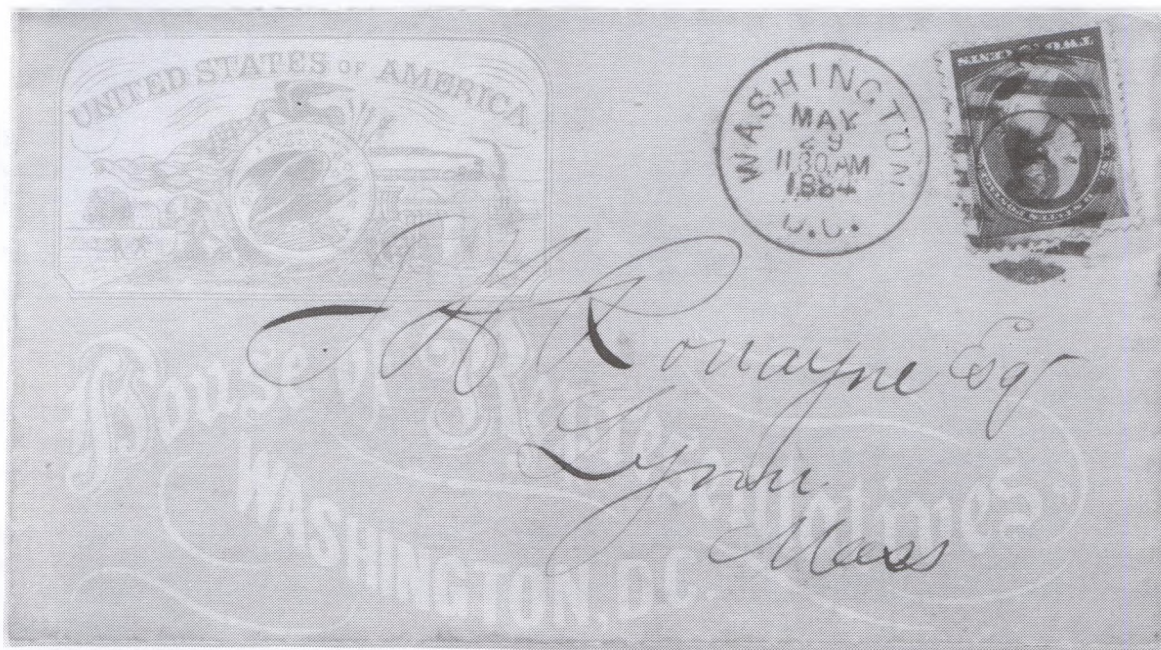 UNITED STATES OF AMERICA.
WASHINGTON
MAY
29
11 30 AM
1884
D.C.
TWO CENTS
J H Ronayne Esq
Lynn
Mass
House of Representatives
WASHINGTON, D.C.